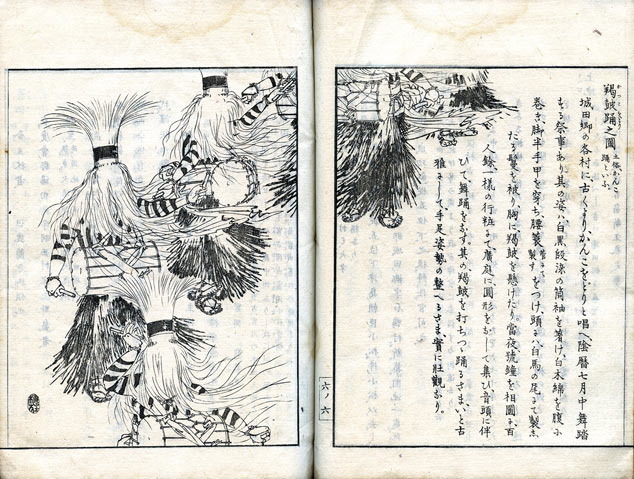 羯鼓踊之圖 かつこをどり 又かんこ踊といふ
城田郷の各村に古くよりかんこをどりと唱へ陰暦七月中舞踏
する祭事あり其の姿ハ白黒段染の筒袖を着け白木綿を腹に
巻き脚半手甲を穿ち腰簑をつけ頭にハ白馬の尾にて製し
たる鬘を被り胸に羯鼓を懸けたり當夜號鐘を相圖に百
人餘一様の行粧にて廣庭に圓形をなして集ひ音頭に伴
ひて舞踊をなす其の羯鼓を打ちつゝ踊るさまいと古
雅にして手足姿勢の整へるさま實に壯觀なり。
六ノ六